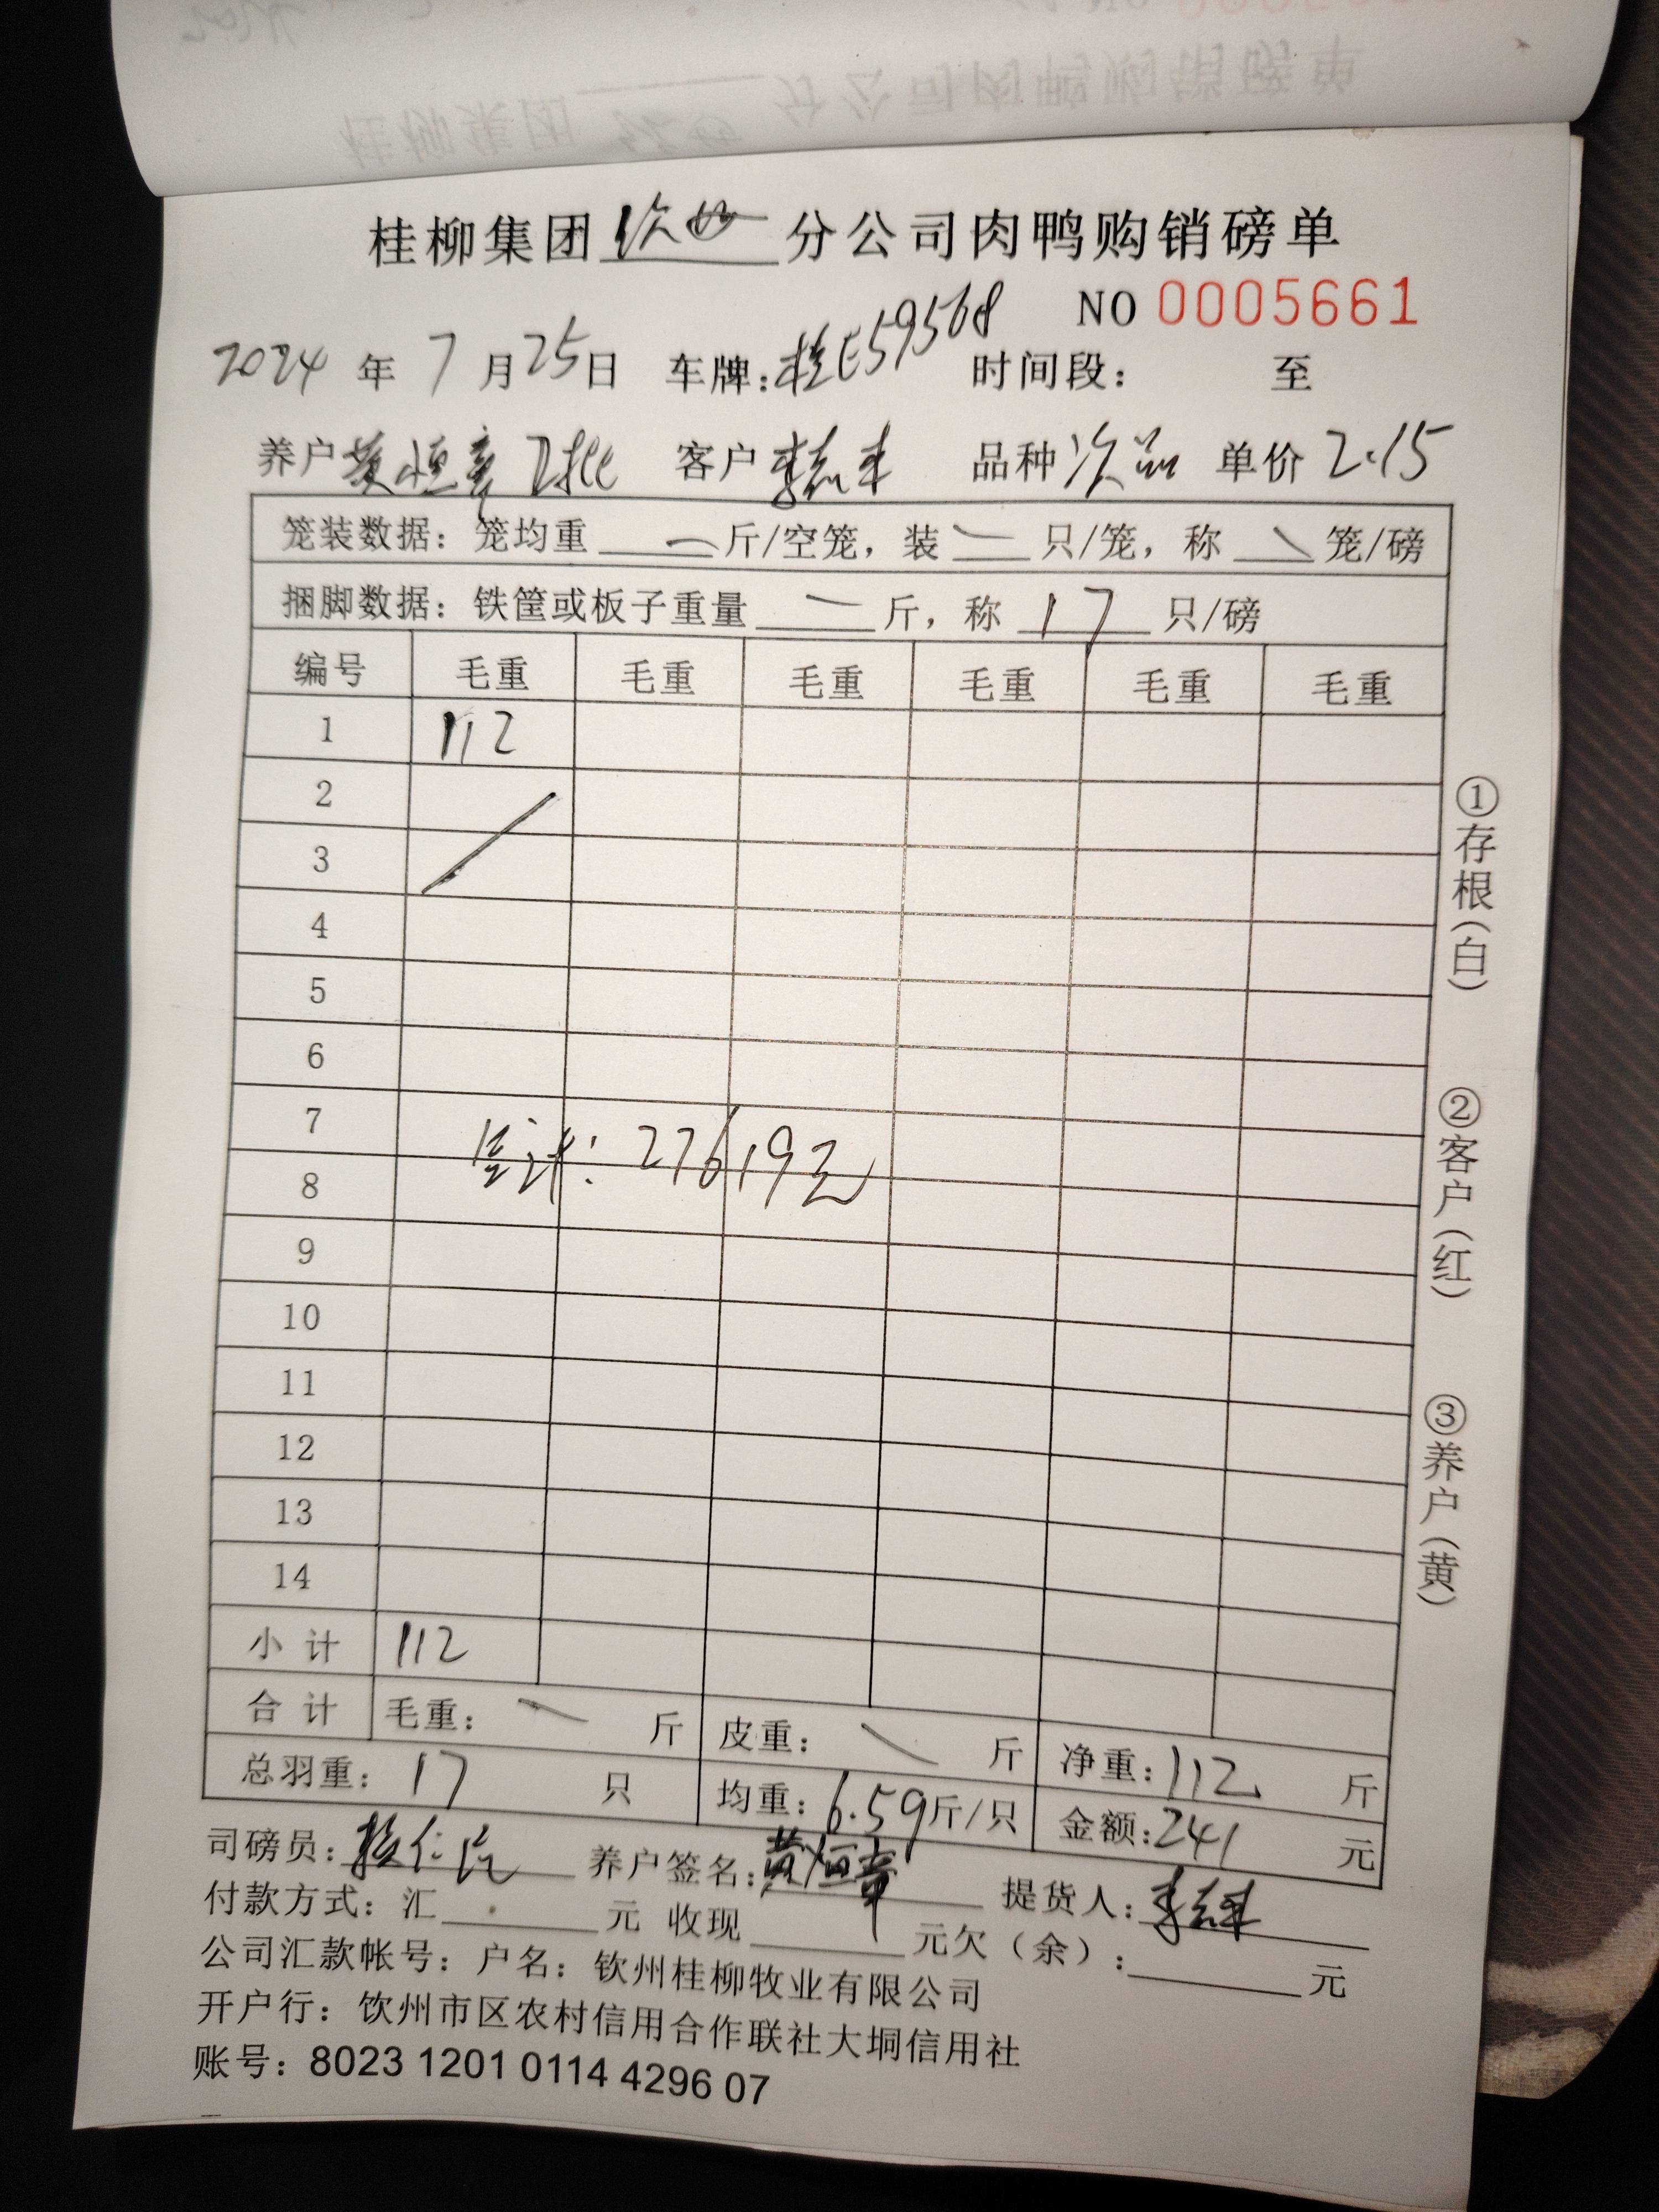 桂柳集团钦州分公司肉鸭购销磅单
NO 0005661
2024年7月25日 车牌:桂E59568 时间段: 至
养户黄恒章 2批 客户 品种次品 单价2.15
笼装数据: 笼均重 斤/空笼, 装 只/笼, 称 笼/磅
捆脚数据: 铁筐或板子重量 斤, 称 17 只/磅
编号 毛重 毛重 毛重 毛重 毛重 毛重
1 112
2
3
4
5
6
7
总计: 27619元
8
9
10
11
12
13
14
小计 112
合计 毛重: 斤 皮重: 斤 净重:112 斤
总羽重: 17 只 均重: 6.59斤/只 金额:241 元
司磅员: 养户签名:黄恒章 提货人:
付款方式: 汇 元 收现 元欠(余): 元
公司汇款帐号: 户名: 钦州桂柳牧业有限公司
开户行: 饮州市区农村信用合作联社大垌信用社
账号: 8023 1201 0114 4296 07
①存根(白)
②客户(红)
③养户(黄)